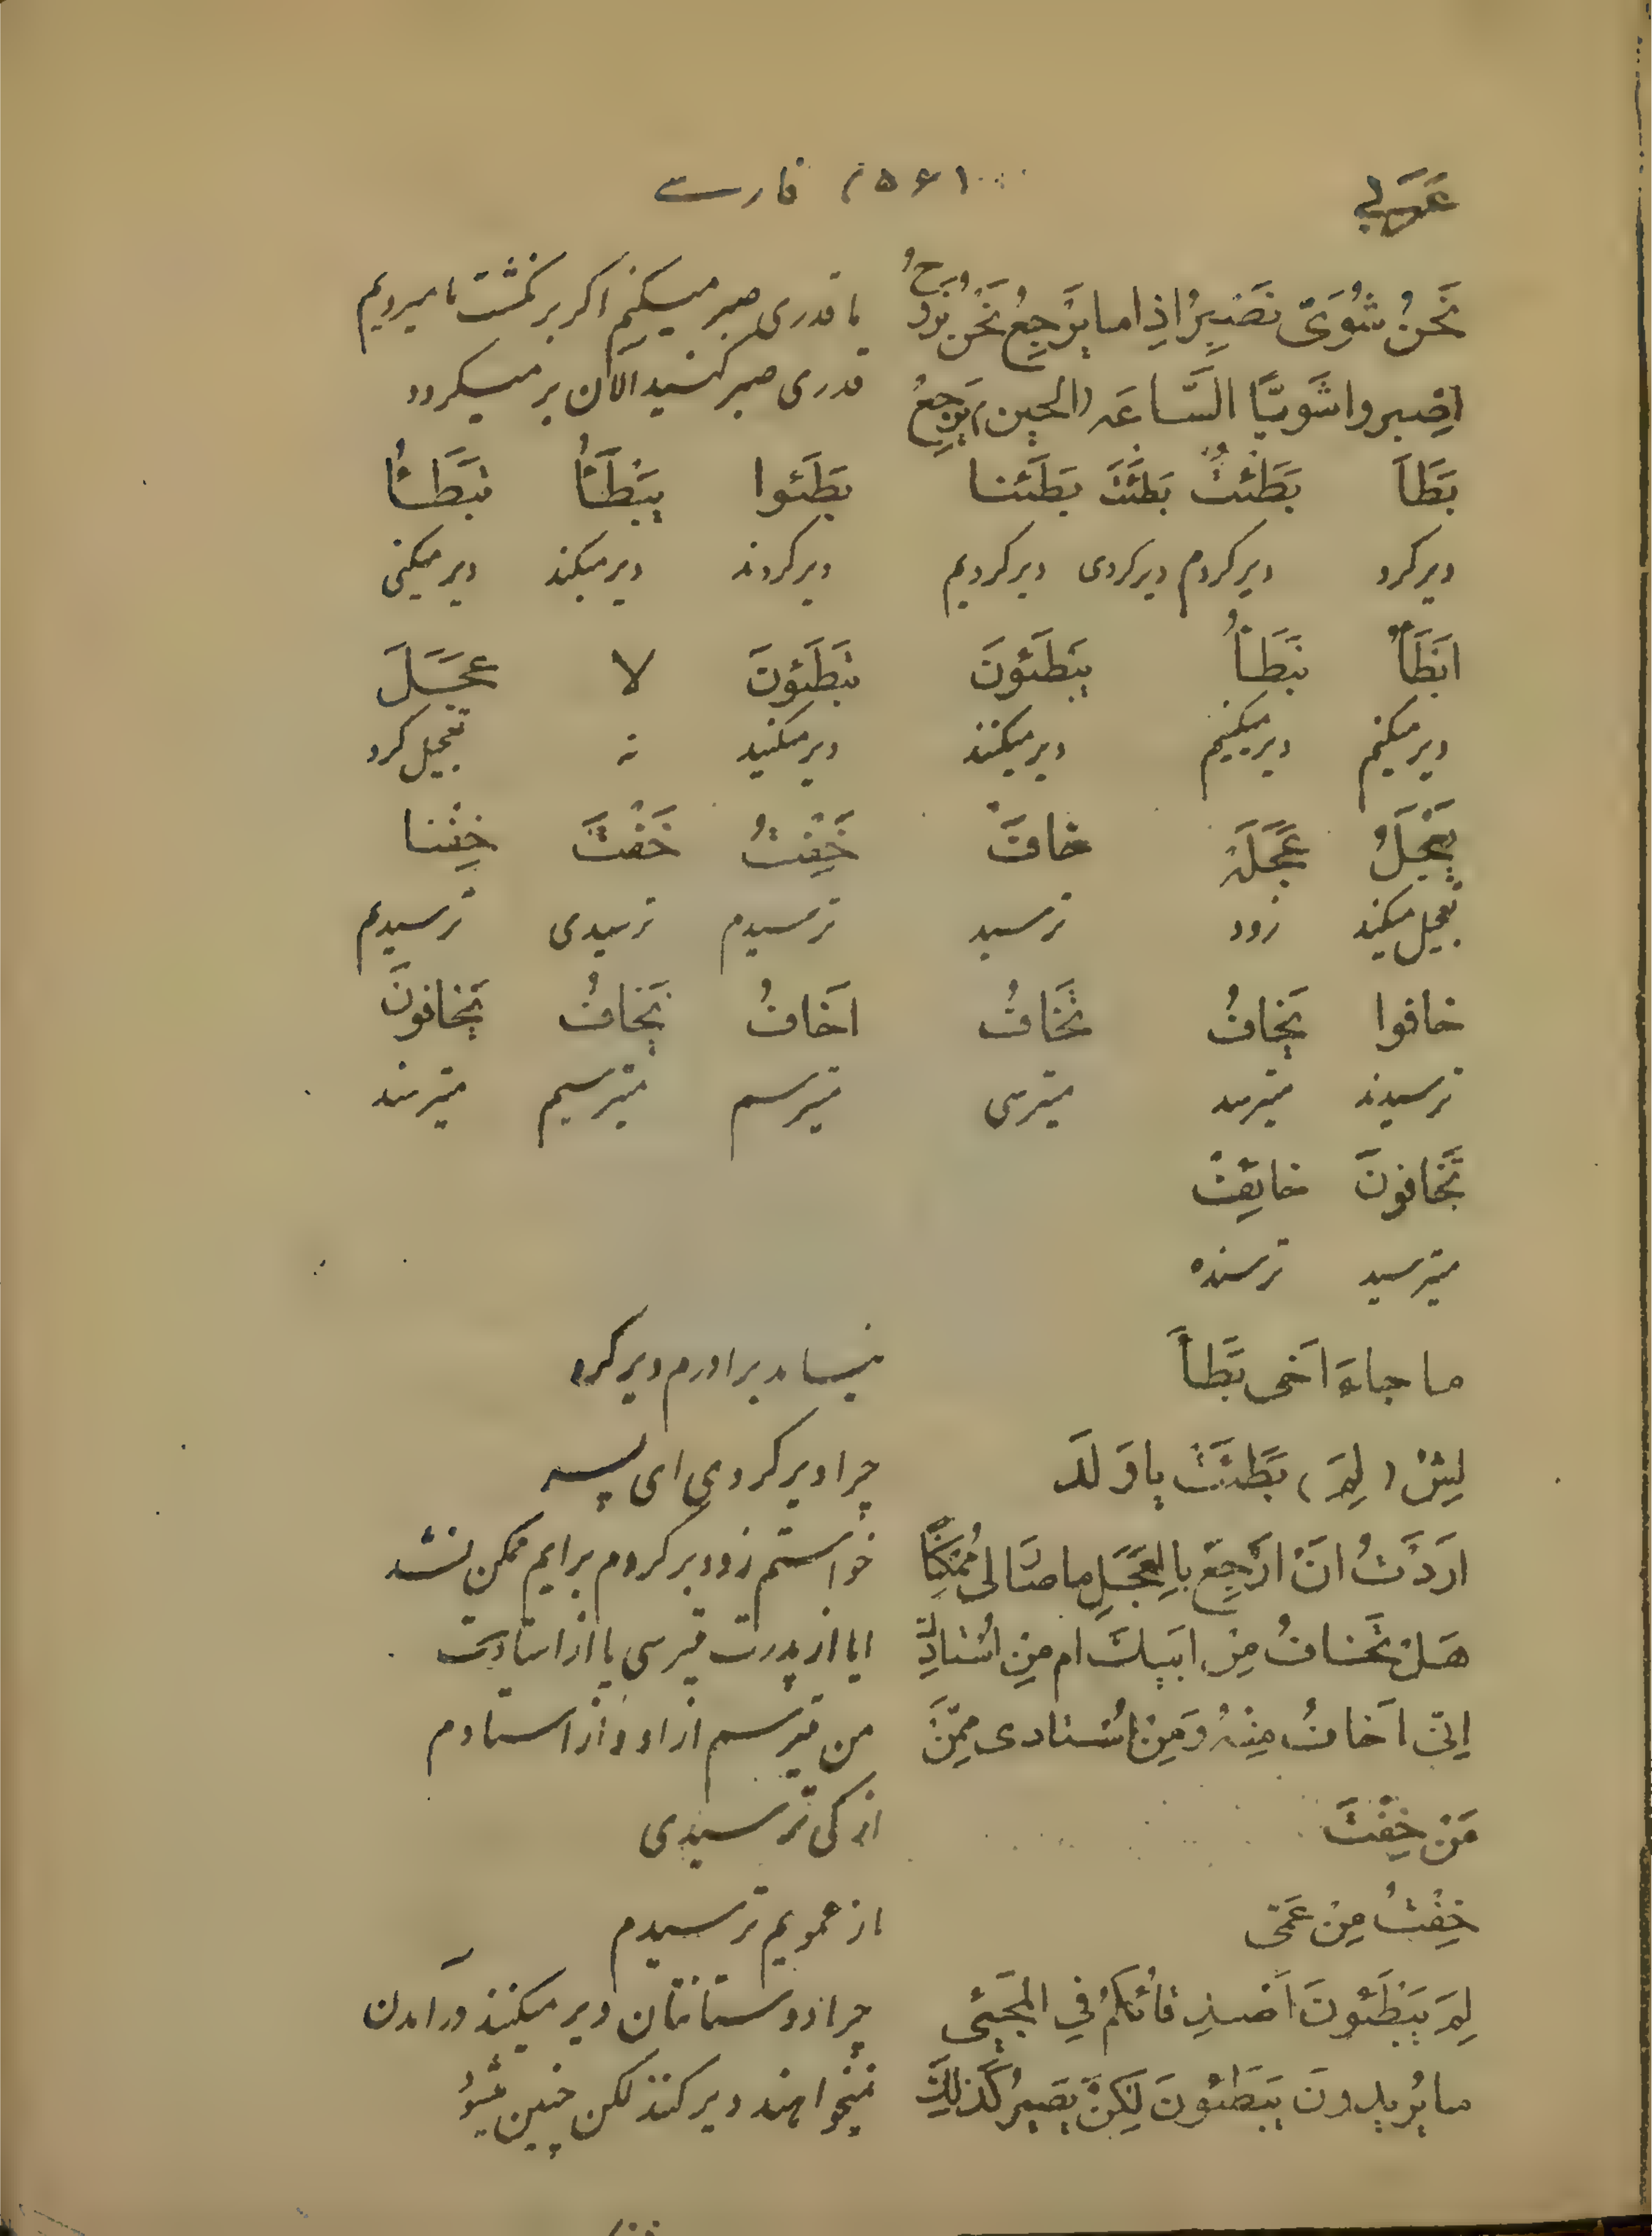 عَرَبي (۱۵۶) فارسے
نَحْنُ شُوَیّ نَصْبِرُ اِذا ما یَرْجِعُ نَحْنُ نَرُوحُ ما قدری صبر میکنیم اکر برنکشت ما میرویم
اِصْبِروا شَوَیّا السَّاعَه (الحین) یَرْجِعُ قدری صبر کنید الآن برمیکردد
بَطَّاَ بَطَّئتُ بَطَّئتَ بَطَّئنا بَطَّئوا یَبَطَّأُ تَبَطَّأُ
دیرکرد دیرکردم دیرکردی دیرکردیم دیرکردند دیرمیکند دیرمیکنی
اَبَطَّأُ نَبَطَّأُ یَبَطَّئونَ تَبَطَّئونَ لا عَجَّلَ
دیرمیکنم دیرمیکنیم دیرمیکنند دیرمیکنید نه تعجیل کرد
یُعَجِّلُ عَجَلَه خافَ خِفْتُ خِفْتَ خِفْنا
تعجیل میکند زود ترسید ترسیدم ترسیدی ترسیدیم
خافوا یَخافُ تَخافُ اَخافُ نَخافُ یَخافونَ
ترسیدند میترسد میترسی میترسم میترسیم میترسند
تَخافونَ خائِفْ
میترسید ترسنده
ما جاءَ اَخی بَطَّاَ نیامد برادرم دیرکرد
لِیشْ (لِمَ) بَطَّئتَ یا وَلَدَ چرا دیر کردی ای پسر
اَرَدْتُ اَنْ اَرْجِعَ بِالعَجَلِ ما صارَ لی مُمْکِنًا خواستم زود برکردم برایم ممکن نشد
هَلْ تَخافُ مِنْ ابیكَ ام مِنْ اُسْتادِكَ ایا از پدرت میترسی یا از استادت
اِنّی اَخافُ مِنْهُ وَمِنْ اُسْتادی مِمَّنْ من میترسم از او و از استادم
مَنْ خِفْتَ از کی ترسیدی
خِفْتُ مِنْ عَمّی از عمویم ترسیدم
لِمَ یَبَطَّئونَ اَصْدِقائُکُمْ فِی المَجیئی چرا دوستانتان دیر میکنند در آمدن
ما یُریدونَ یَبَطَّئونَ لکِنْ یَصیرُ کَذلِكَ نمیخواهند دیر کنند لکن چنین میشود